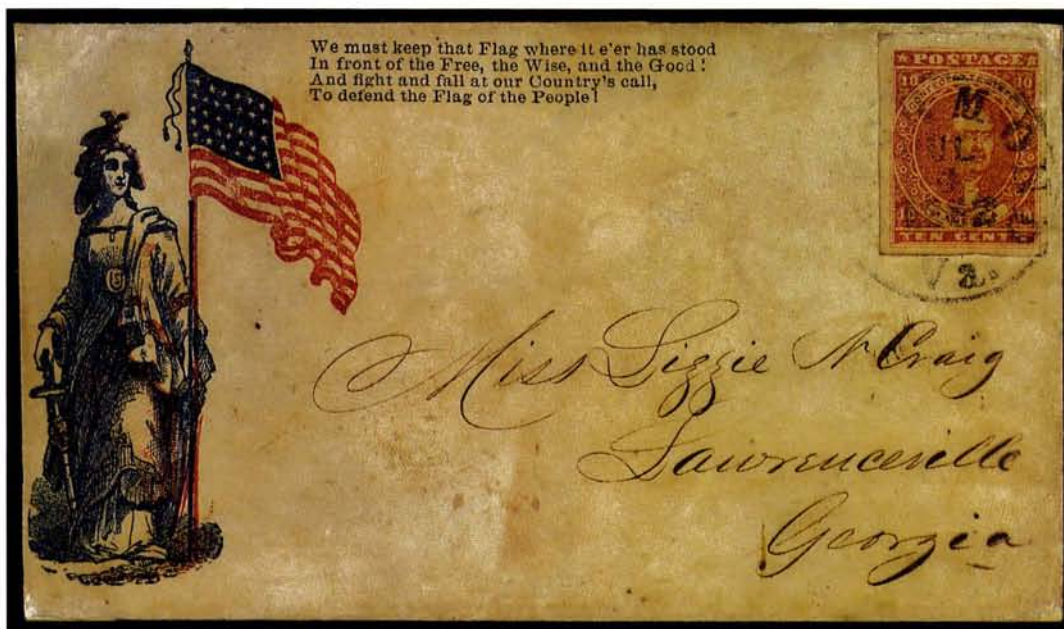 We must keep that Flag where it e'er has stood
In front of the Free, the Wise, and the Good!
And fight and fall at our Country's call,
To defend the Flag of the People!
POSTAGE
10 10
TEN CENTS
Va.
Miss Lizzie N Craig
Lawrenceville
Georgia